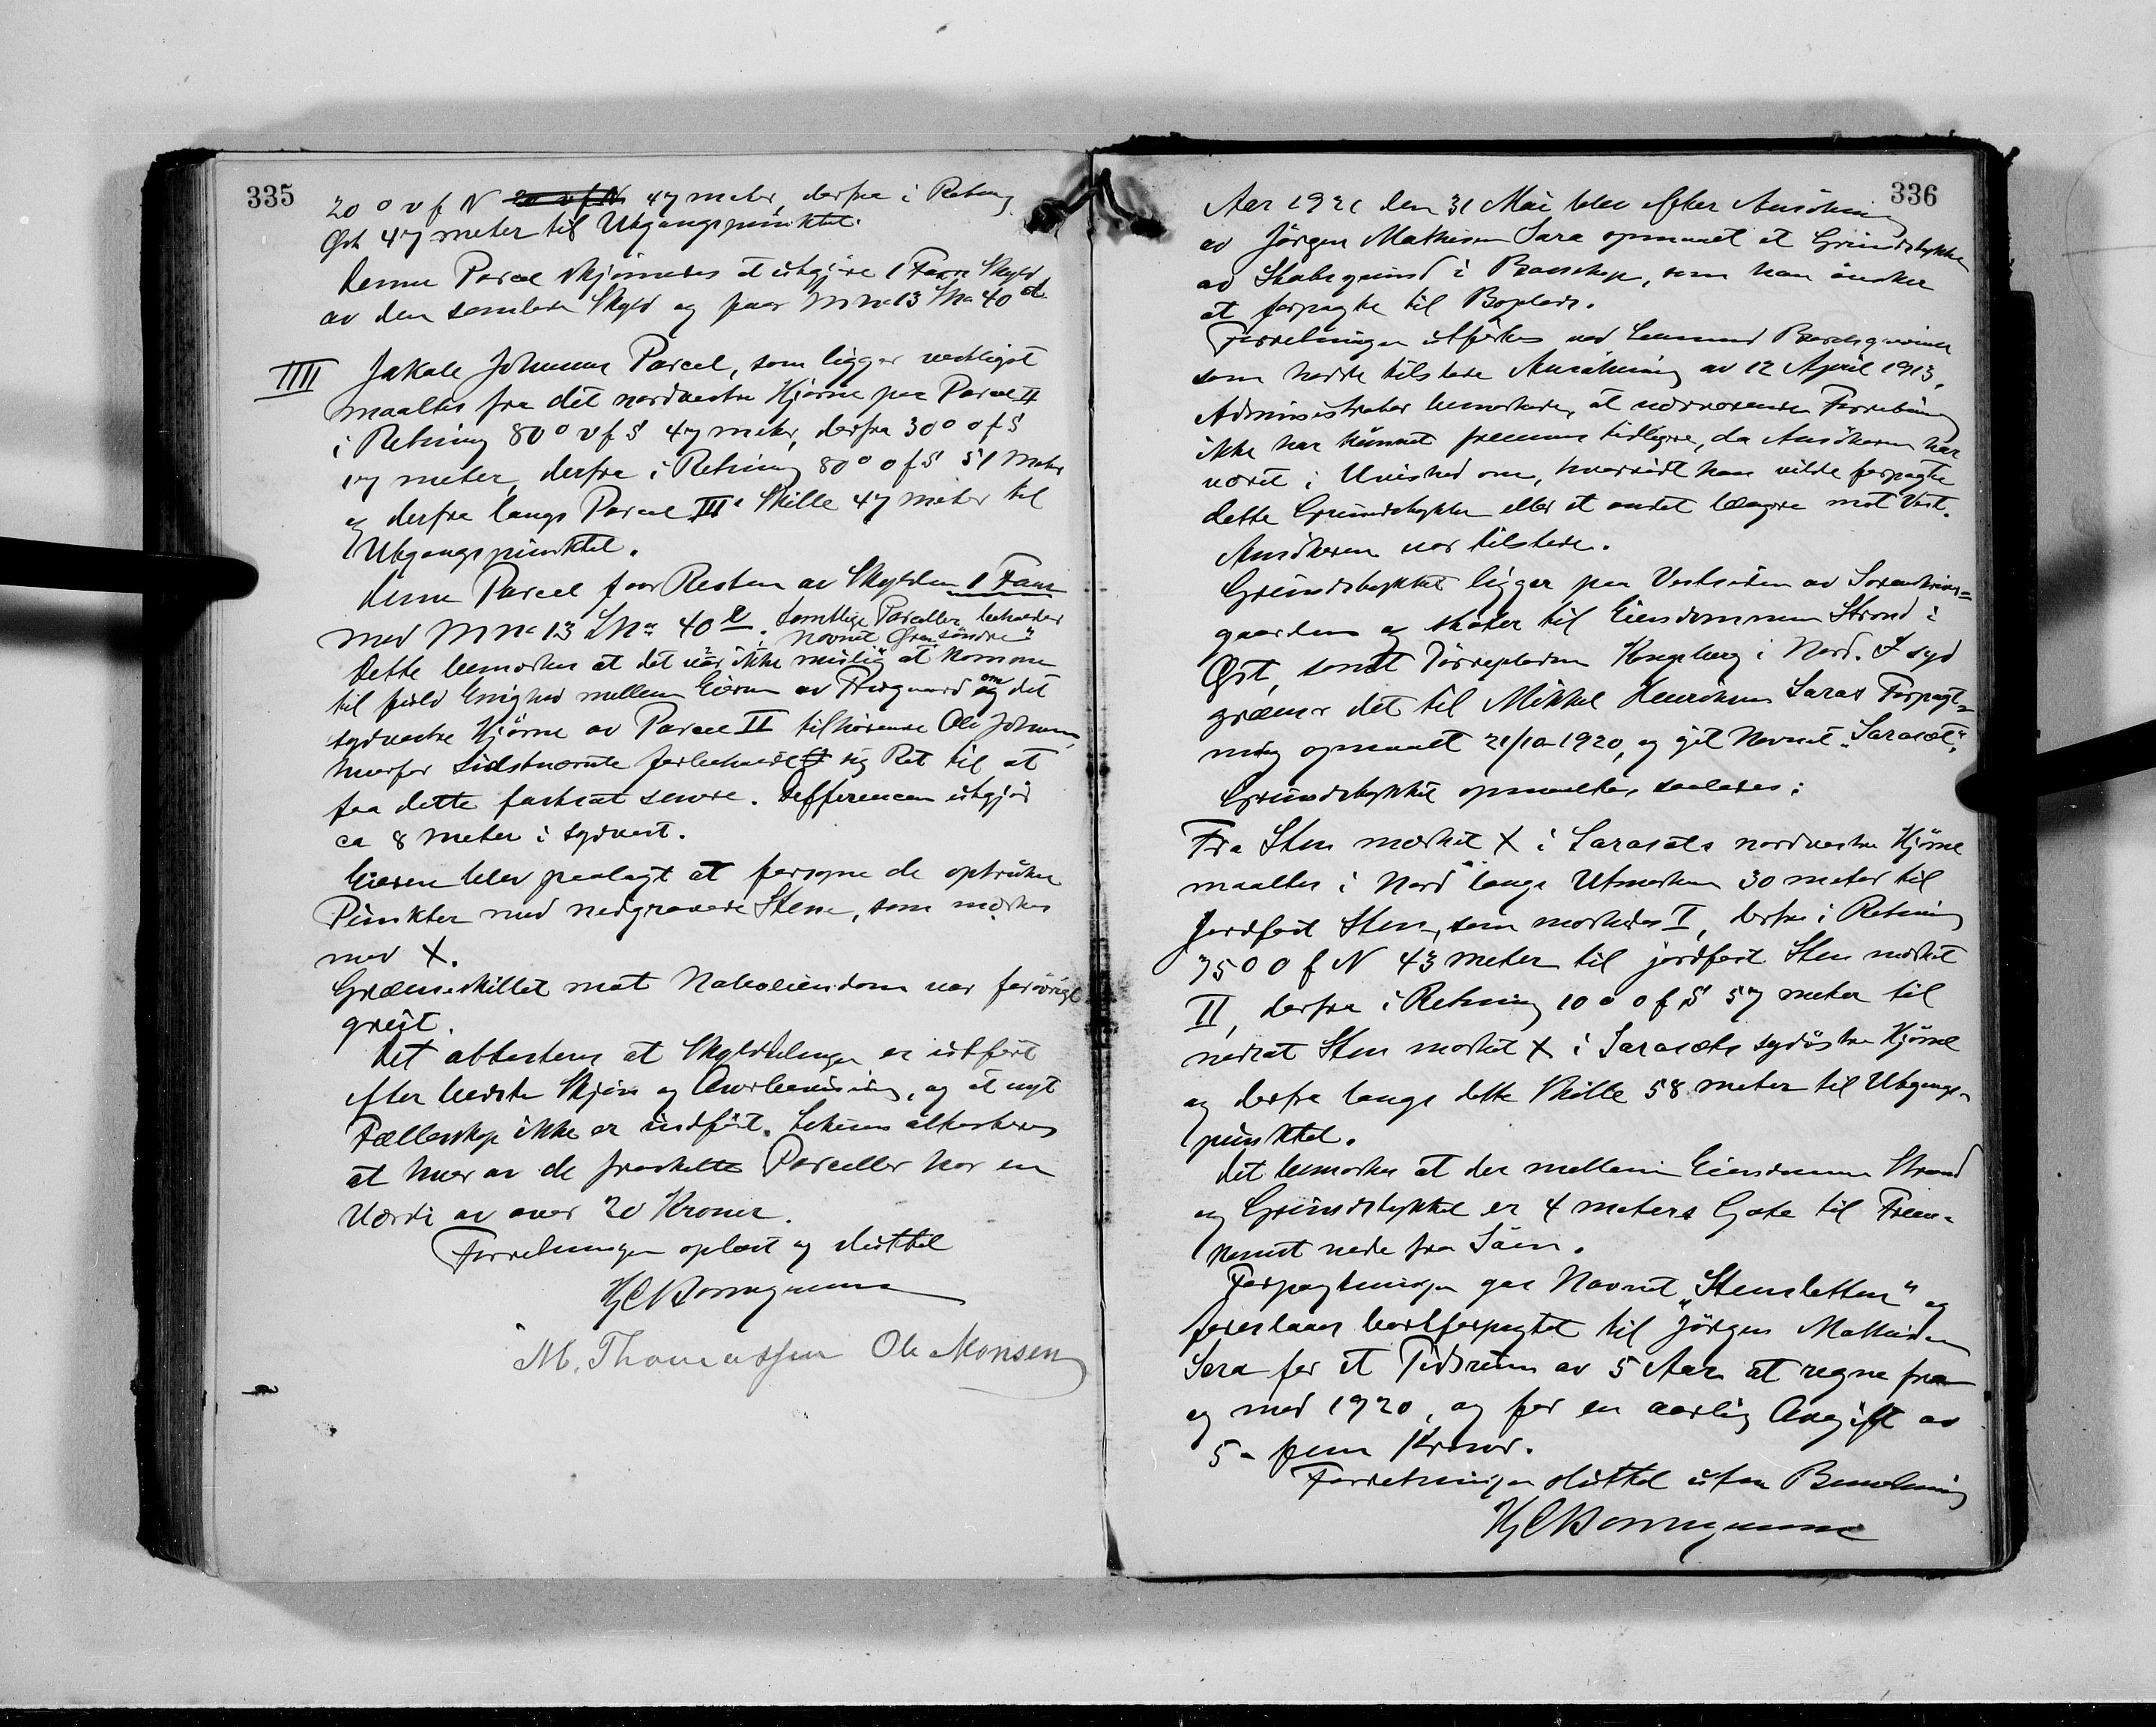 335
20° v f N 20 v f N 47 meter, derfra i Retning
Øst 47 meter til Utgangspunktet.
Denne Parcel skjønnedes at utgjøre 1 Favn Skyld
av den samlede Skyld og faar M no 13 Lno 40 d
IIII Jakale Johnsens Parcel, som ligger vestligst
maaltes fra det nordvestre Hjørne paa Parcel II
i Retning 80° v f S 47 meter, derfra 30° o f S
17 meter, derfra i Retning 80° o f S 51 meter
og derfra langs Parcel III's Skille 47 meter til
Utgangspunktet.
Denne Parcel faar Resten av Skylden 1 Favn
med M no 13 Lno 40 e. Samtlige Parceller beholder
Navnet Øra søndre"
Dette bemerkes at det var ikke mulig at komme
til fuld Enighed mellem Eieren av og om det
sydvestre Hjørne av Parcel II tilhørende Ole Johnsen,
hvorfor sidstnævnte forbeholdt sig Ret til at
faa dette fastsat senere. Defferencen utgjør
ca 8 meter i sydvest.
Eieren blev paalagt at forsyne de optrukne
Punkter med nedgravede Stene, som merkes
med X.
Grænseskillet mot Naboeiendom var forøvrigt
greit.
Det attesteres at Skylddelingen er utført
efter bedste Skjøn og Overbevisning, og at nyt
Fællesskap ikke er indført. Likesaa attesteres
at hver av de fraskilte Parceller har en
Værdi av over 20 Kroner.
Forretningen oplæst og sluttet
M. Thomassen Ole Monsen
336
Aar 1921 den 31 Mai blev efter Ansøkning
av Jørgen Mathisen Sara opmaalt et Grundstykke
av Statsgrund i, som han ønsker
at forpagte til Boplads.
Forretningen utførtes ved Lensmand
som hadde tilstede Ansøkning av 12 April 1913,
Administrator bemerkede, at nærværende Forretning
ikke har kunnet fremmes tidligere, da Ansøkeren har
været i Uvished om, hvorvidt han vilde forpagte
dette Grundstykke eller et andet længere mot Vest.
Ansøkeren var tilstede.
Grundstykket ligger paa Vestsiden av Sorenskriver=
gaarden og støter til Eiendommen Strand i
Øst, samt Tørrepladsen Kongsberg i Nord. I syd
grænser det til Mikkel Henriksen Saras Forpagt=
ning opmaalt 21/10 1920, og git Navnet „Sarasæt".
Grundstykket opmaaltes saaledes:
Fra Sten merket X i Sarasæts nordvestre Hjørne
maaltes i Nord langs Utmarken 30 meter til
Jordfast Sten, som merkedes I, derfra i Retning
75° o f N 43 meter til jordfast Sten merket
II, derfra i Retning 10° o f S 57 meter til
nedsat Sten merket X i Sarasæts sydøstre Hjørne
og derfra langs dette Skille 58 meter til Utgangs=
punktet.
Det bemerkes at der mellem Eiendommen Strand
og Grundstykket er 4 meters Gate til Frem=
komst nede fra Sjøen.
Forpagtningen gaar Navnet „Stensletten" og
foreslaaes bortforpagtet til Jørgen Mathisen
Sara for et Tidsrum av 5 Aar at regne fra
og med 1920, og for en aarlig Avgift av
5 - fem Kroner.
Forretningen sluttet uten Bemerkning